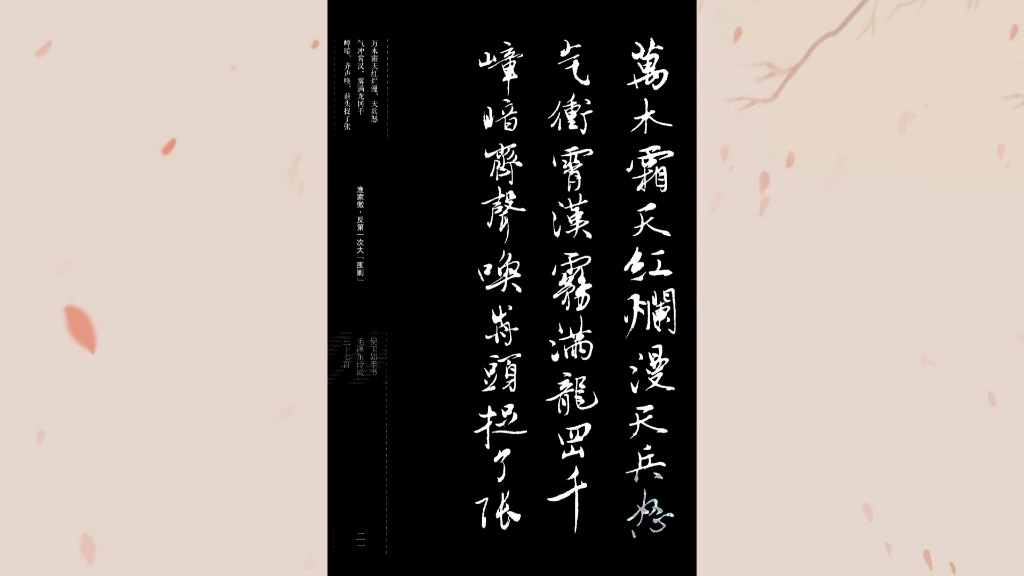 萬木霜天紅爛漫天兵怒
气衝霄漢霧滿龍岡千
嶂暗齊聲喚前頭捉了張
万木霜天红烂漫，天兵怒
气冲霄汉。雾满龙冈千
嶂暗，齐声唤，前头捉了张
漁家傲·反第一次大「圍剿」
毛泽东诗词
三十七首
二一